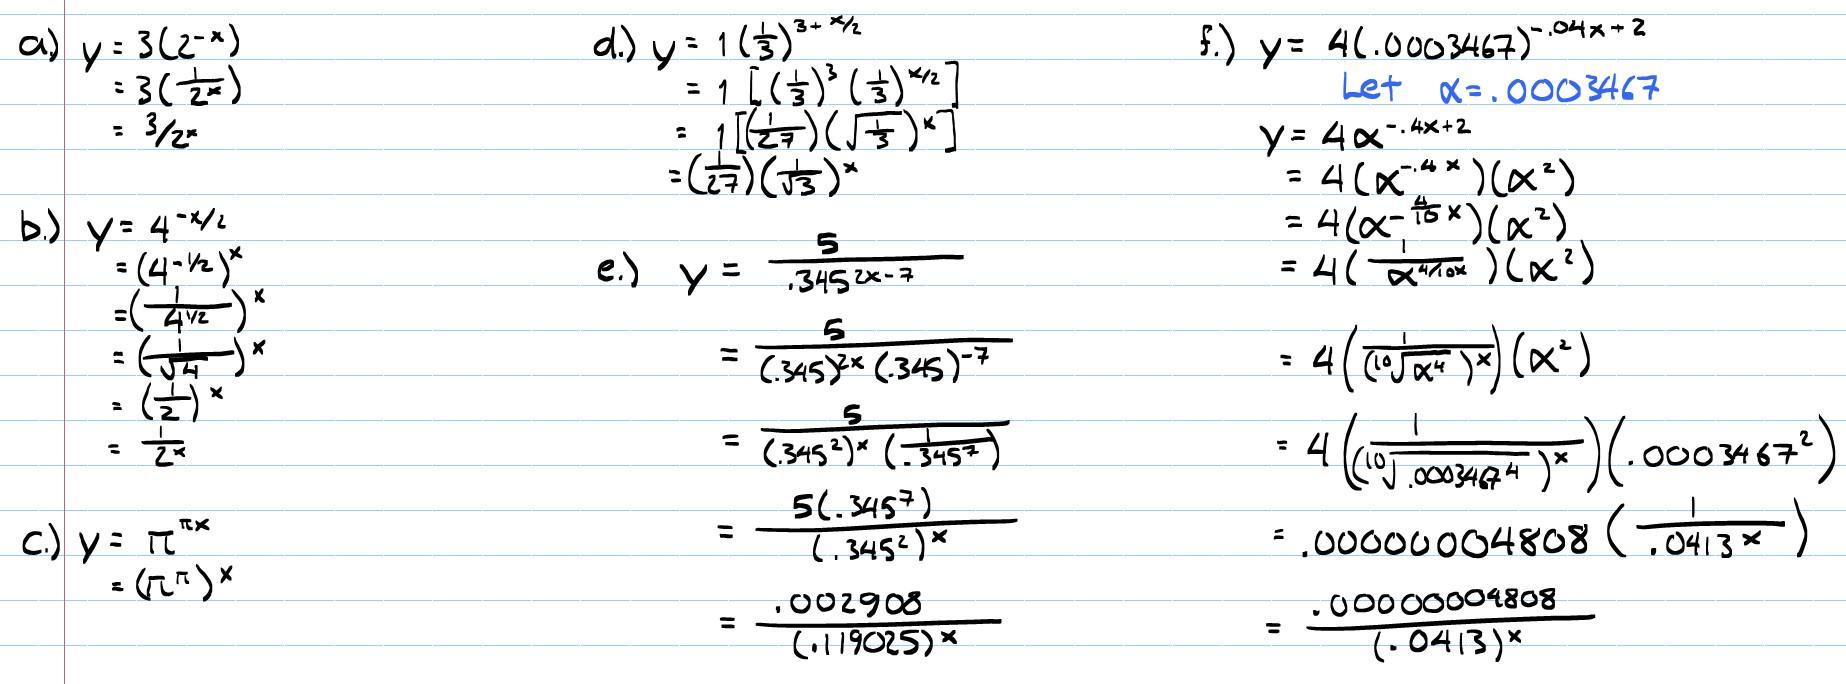 a.) y = 3(2^-x)
= 3(1/2^x)
= 3/2^x
b.) y = 4^-x/2
= (4^-1/2)^x
= (1/4^1/2)^x
= (1/√4)^x
= (1/2)^x
= 1/2^x
c.) y = π^πx
= (π^π)^x
d.) y = 1(1/3)^3+x/2
= 1[(1/3)^3 (1/3)^x/2]
= 1[(1/27)(√1/3)^x]
= (1/27)(1/√3)^x
e.) y = 5/.345^2x-7
= 5/(.345)^2x (.345)^-7
= 5/(.345^2)^x (1/.345^7)
= 5(.345^7)/(.345^2)^x
= .002908/(.119025)^x
f.) y = 4(.0003467)^-.04x+2
Let α=.0003467
y = 4α^-.4x+2
= 4(α^-.4x)(α^2)
= 4(α^-4/10x)(α^2)
= 4(1/α^4/10x)(α^2)
= 4(1/(10√α^4)^x)(α^2)
= 4(1/(10√.0003467^4)^x)(.0003467^2)
= .000000004808(1/.0413^x)
= .00000004808/(.0413)^x